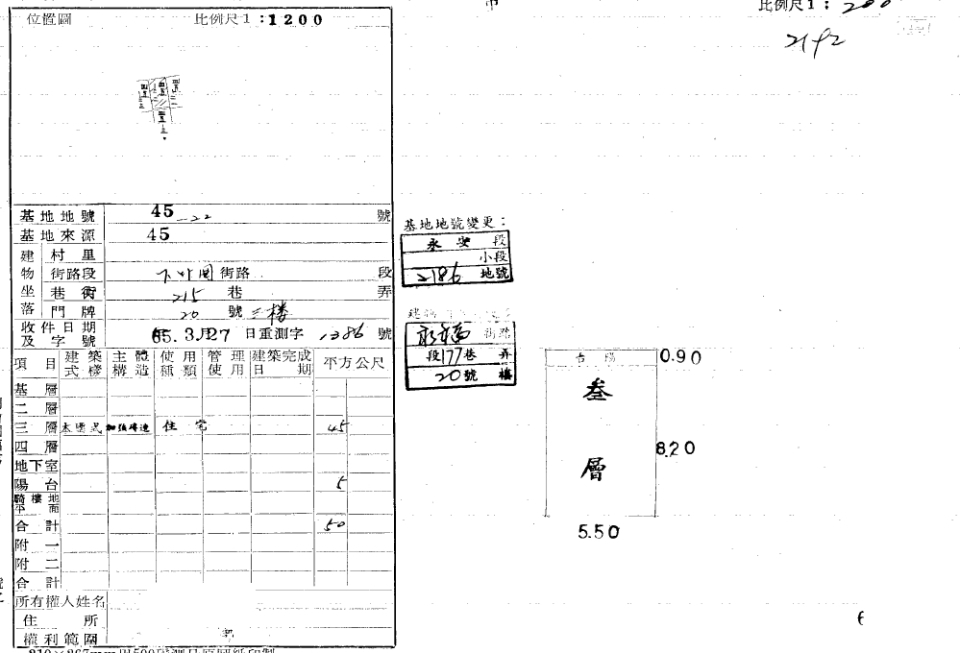 位置圖 比例尺1:1200
比例尺1:200
基地地號 45-22 號
基地來源 45
建物坐落
村里
街路段 街路 段
巷衖 215 巷 弄
門牌 20 號 三樓
收件日期及字號 65.3月27日重測字1386號
項目 建築式樣 主體構造 使用種類 管理使用 建築完成日期 平方公尺
基層
二層
三層 本國式 加強磚造 住宅 45
四層
地下室
陽台 5
騎樓地平面
合計 50
附一
附二
合計
所有權人姓名
住所
權利範圍
基地地號變更:
永安 段
小段
2186 地號
永福 街路
段177巷 弄
20號 樓
0.90
叁
層
8.20
5.50